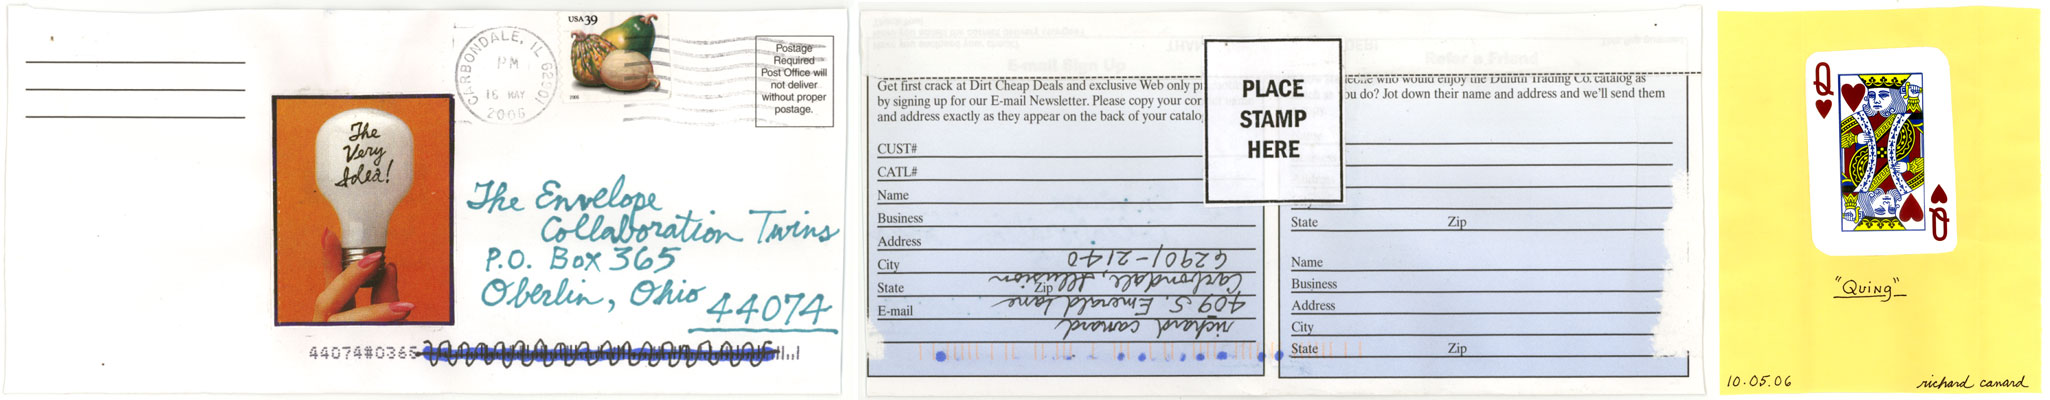 CARBONDALE, IL 62901
PM
16 MAY
2006
USA 39
2006
Postage
Required
Post Office will
not deliver
without proper
postage.
The
Very
Idea!
The Envelope
Collaboration Twins
P.O. Box 365
Oberlin, Ohio
44074
44074#0365
E-mail Sign Up
Refer a Friend
Get first crack at Dirt Cheap Deals and exclusive Web only
by signing up for our E-mail Newsletter. Please copy your
and address exactly as they appear on the back of your
CUST#
CATL#
Name
Business
Address
City
State Zip
E-mail
PLACE
STAMP
HERE
who would enjoy the Duluth Trading Co. catalog as
you do? Jot down their name and address and we'll send them
State Zip
Name
Business
Address
City
State Zip
richard canard
409 S. Emerald Lane
Carbondale, Illusion
62901-2140
Q
Q
"Quing"
10.05.06
richard canard